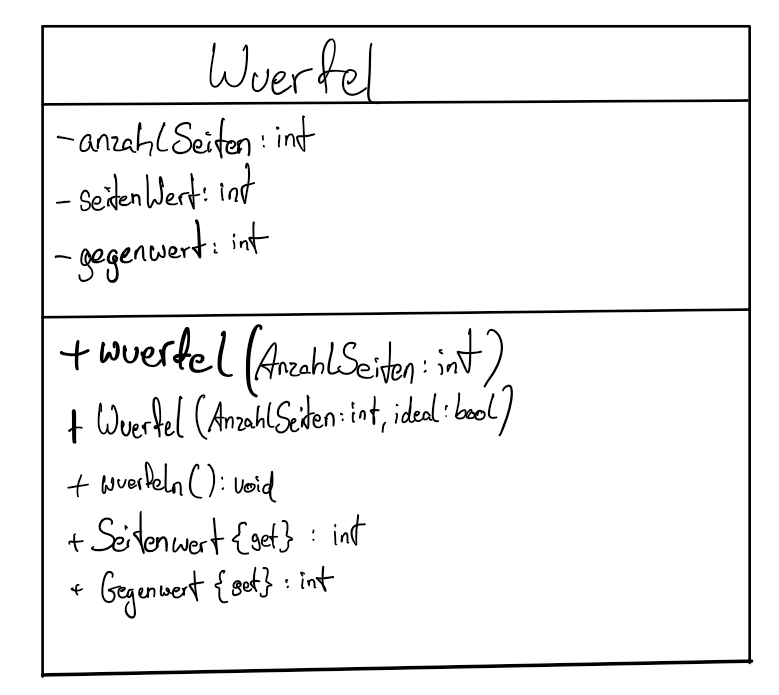 Wuerfel
- anzahlSeiten : int
- seitenWert : int
- gegenwert : int
+ wuerfel (AnzahlSeiten : int)
+ Wuerfel (AnzahlSeiten : int, ideal : bool)
+ wuerfeln () : void
+ Seitenwert {get} : int
+ Gegenwert {get} : int